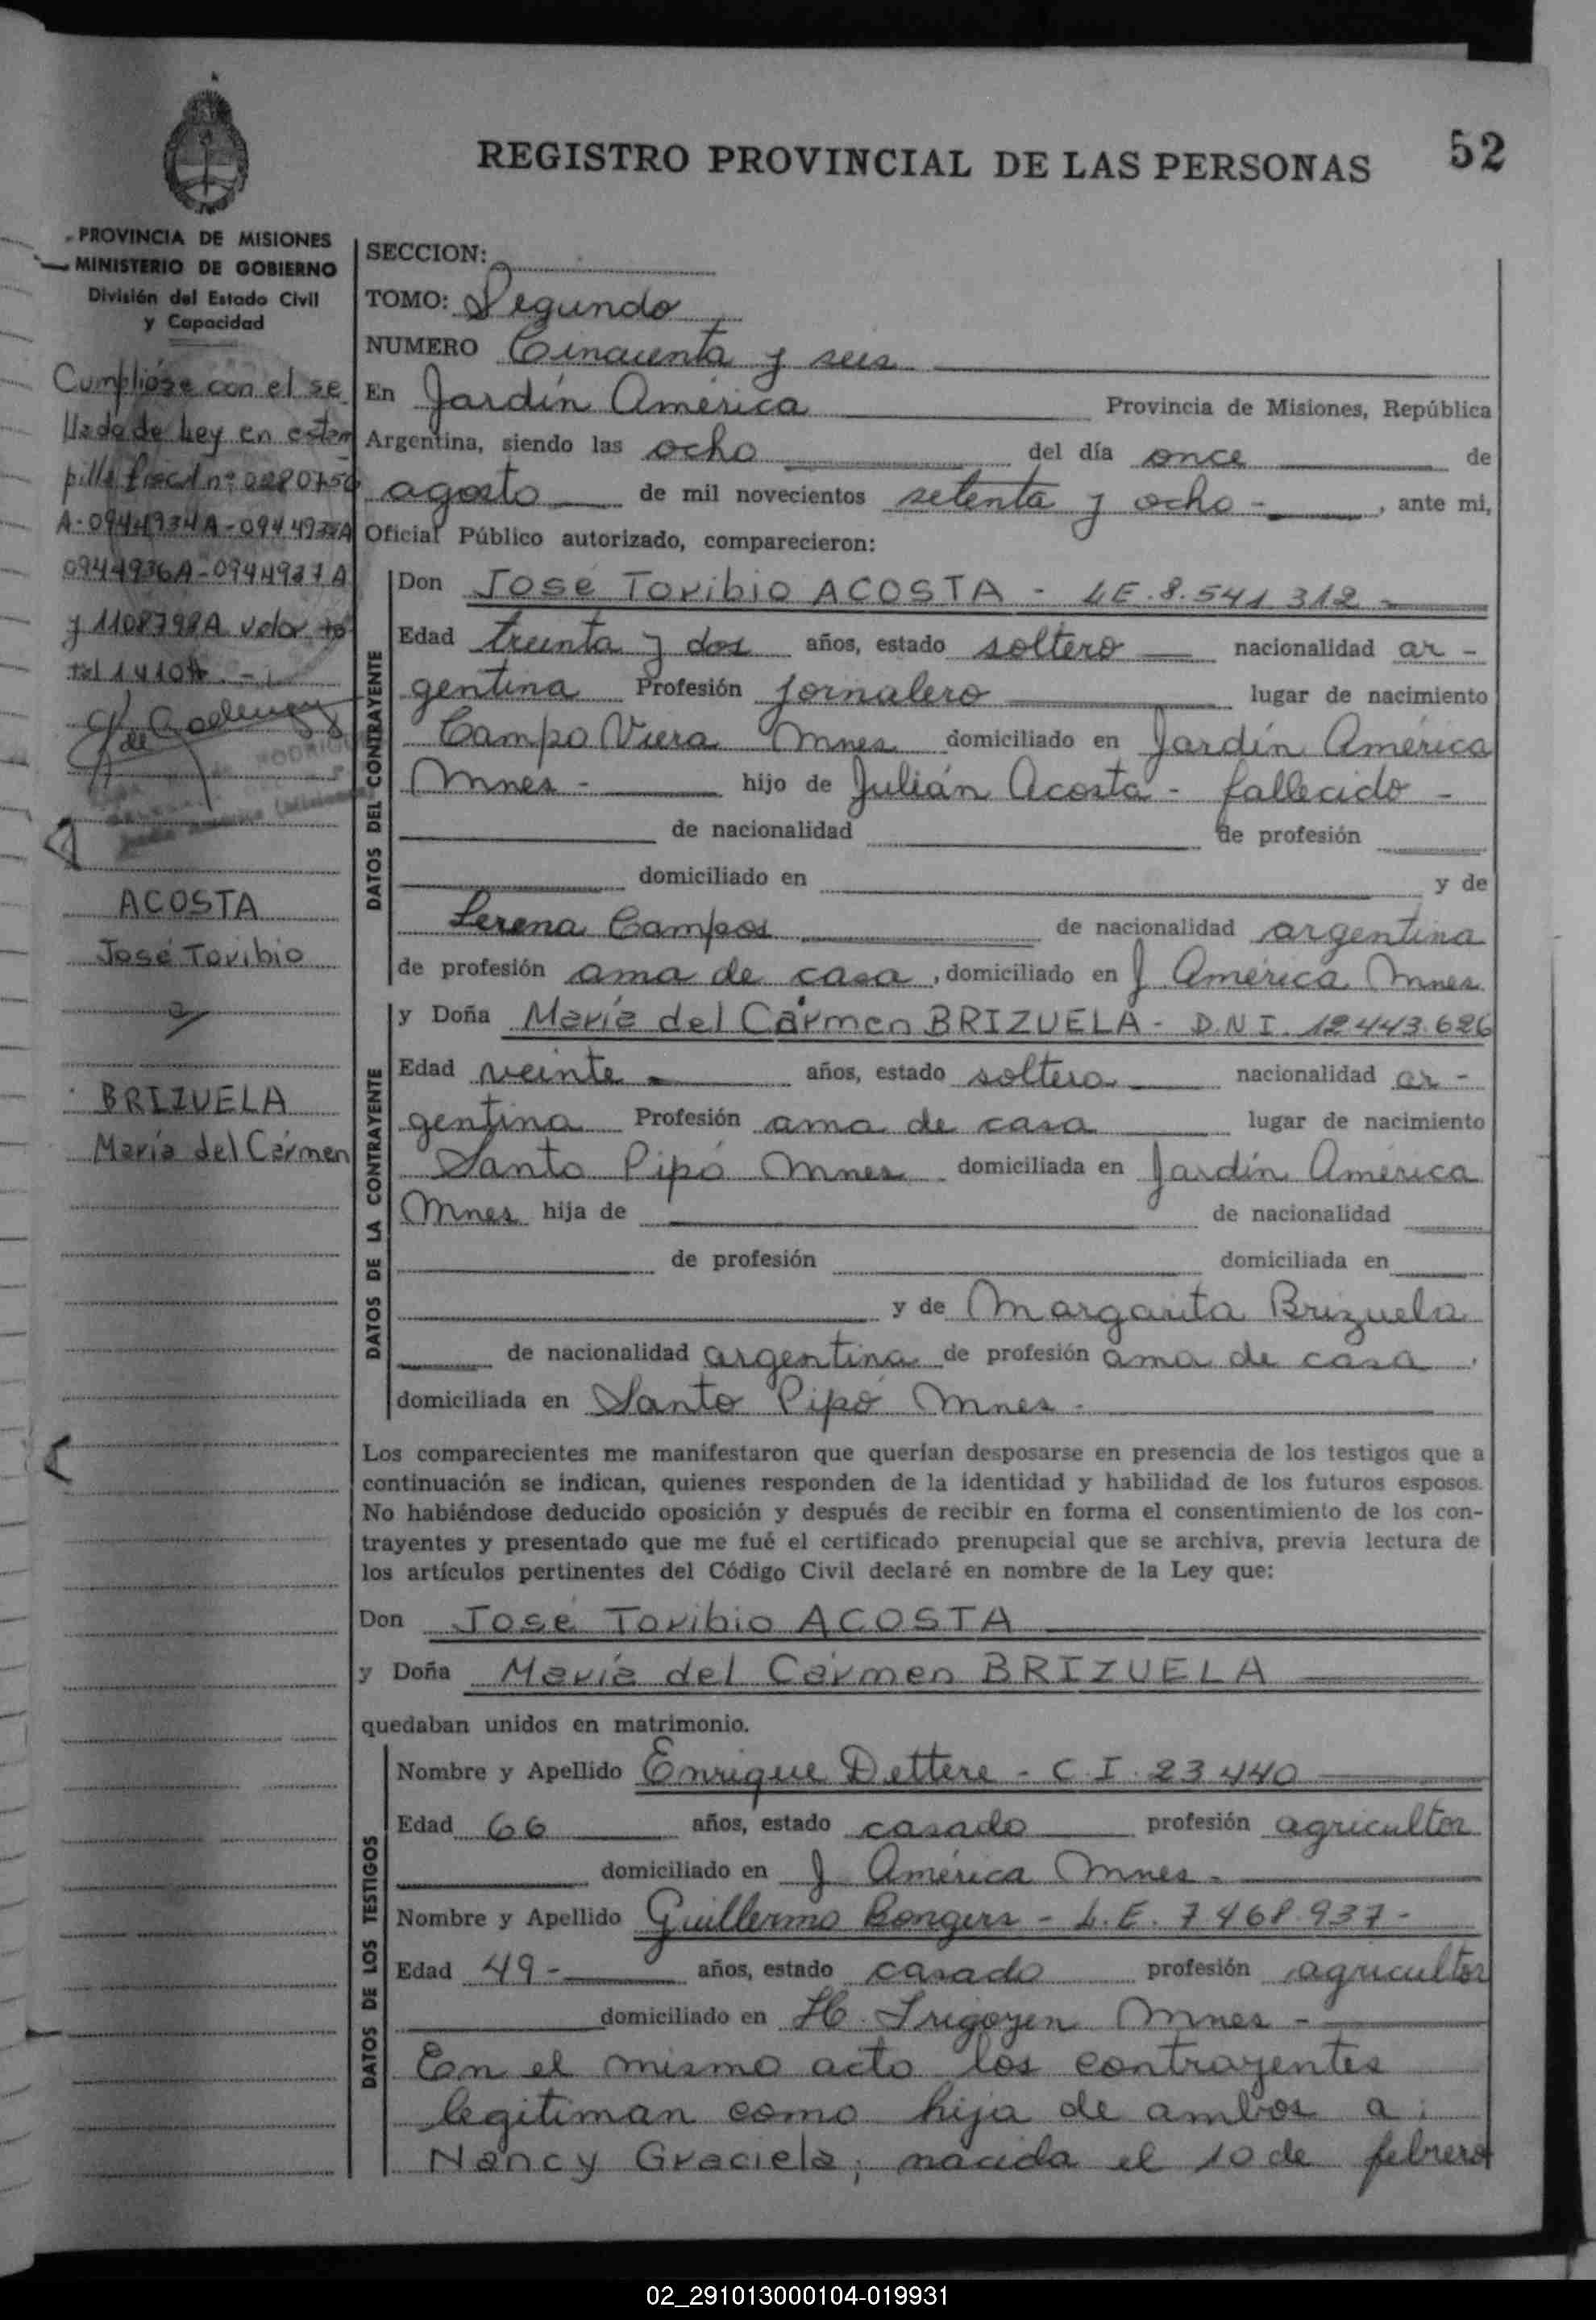 REGISTRO PROVINCIAL DE LAS PERSONAS
52
PROVINCIA DE MISIONES
MINISTERIO DE GOBIERNO
División del Estado Civil
y Capacidad
Cumplióse con el se
llado de Ley en estam
pilla fiscal nº 0280756
A-0944934A-0944935A
0944936A-0944937A
y 1108798A valor to
tal 1410
ACOSTA
José Toribio
y
BRIZUELA
María del Cármen
SECCION:
TOMO: Segundo
NUMERO Cincuenta y seis
En Jardín América Provincia de Misiones, República
Argentina, siendo las ocho del día once de
agosto de mil novecientos setenta y ocho -, ante mi,
Oficial Público autorizado, comparecieron:
DATOS DEL CONTRAYENTE
Don José Toribio ACOSTA - LE. 8.541.312 -
Edad treinta y dos años, estado soltero nacionalidad ar -
gentina Profesión jornalero lugar de nacimiento
Campo Viera Mnes domiciliado en Jardín América
Mnes - hijo de Julián Acosta - fallecido -
de nacionalidad de profesión
domiciliado en y de
Serena Campos de nacionalidad argentina
de profesión ama de casa, domiciliado en J. América Mnes
DATOS DE LA CONTRAYENTE
y Doña María del Cármen BRIZUELA - D.N.I. 12.443.626
Edad veinte - años, estado soltera nacionalidad ar -
gentina Profesión ama de casa lugar de nacimiento
Santo Pipó Mnes domiciliada en Jardín América
Mnes hija de de nacionalidad
de profesión domiciliada en
y de Margarita Brizuela
de nacionalidad argentina de profesión ama de casa,
domiciliada en Santo Pipó Mnes -
Los comparecientes me manifestaron que querían desposarse en presencia de los testigos que a
continuación se indican, quienes responden de la identidad y habilidad de los futuros esposos.
No habiéndose deducido oposición y después de recibir en forma el consentimiento de los con-
trayentes y presentado que me fué el certificado prenupcial que se archiva, previa lectura de
los artículos pertinentes del Código Civil declaré en nombre de la Ley que:
Don José Toribio ACOSTA
y Doña María del Cármen BRIZUELA
quedaban unidos en matrimonio.
DATOS DE LOS TESTIGOS
Nombre y Apellido Enrique Dettere - C.I. 23.440
Edad 66 años, estado casado profesión agricultor
domiciliado en J. América Mnes -
Nombre y Apellido Guillermo Bongers - L.E. 7.468.937 -
Edad 49 - años, estado casado profesión agricultor
domiciliado en H. Irigoyen Mnes -
En el mismo acto los contrayentes
legitiman como hija de ambos a:
Nancy Graciela; nacida el 10 de febrero
02_291013000104-019931